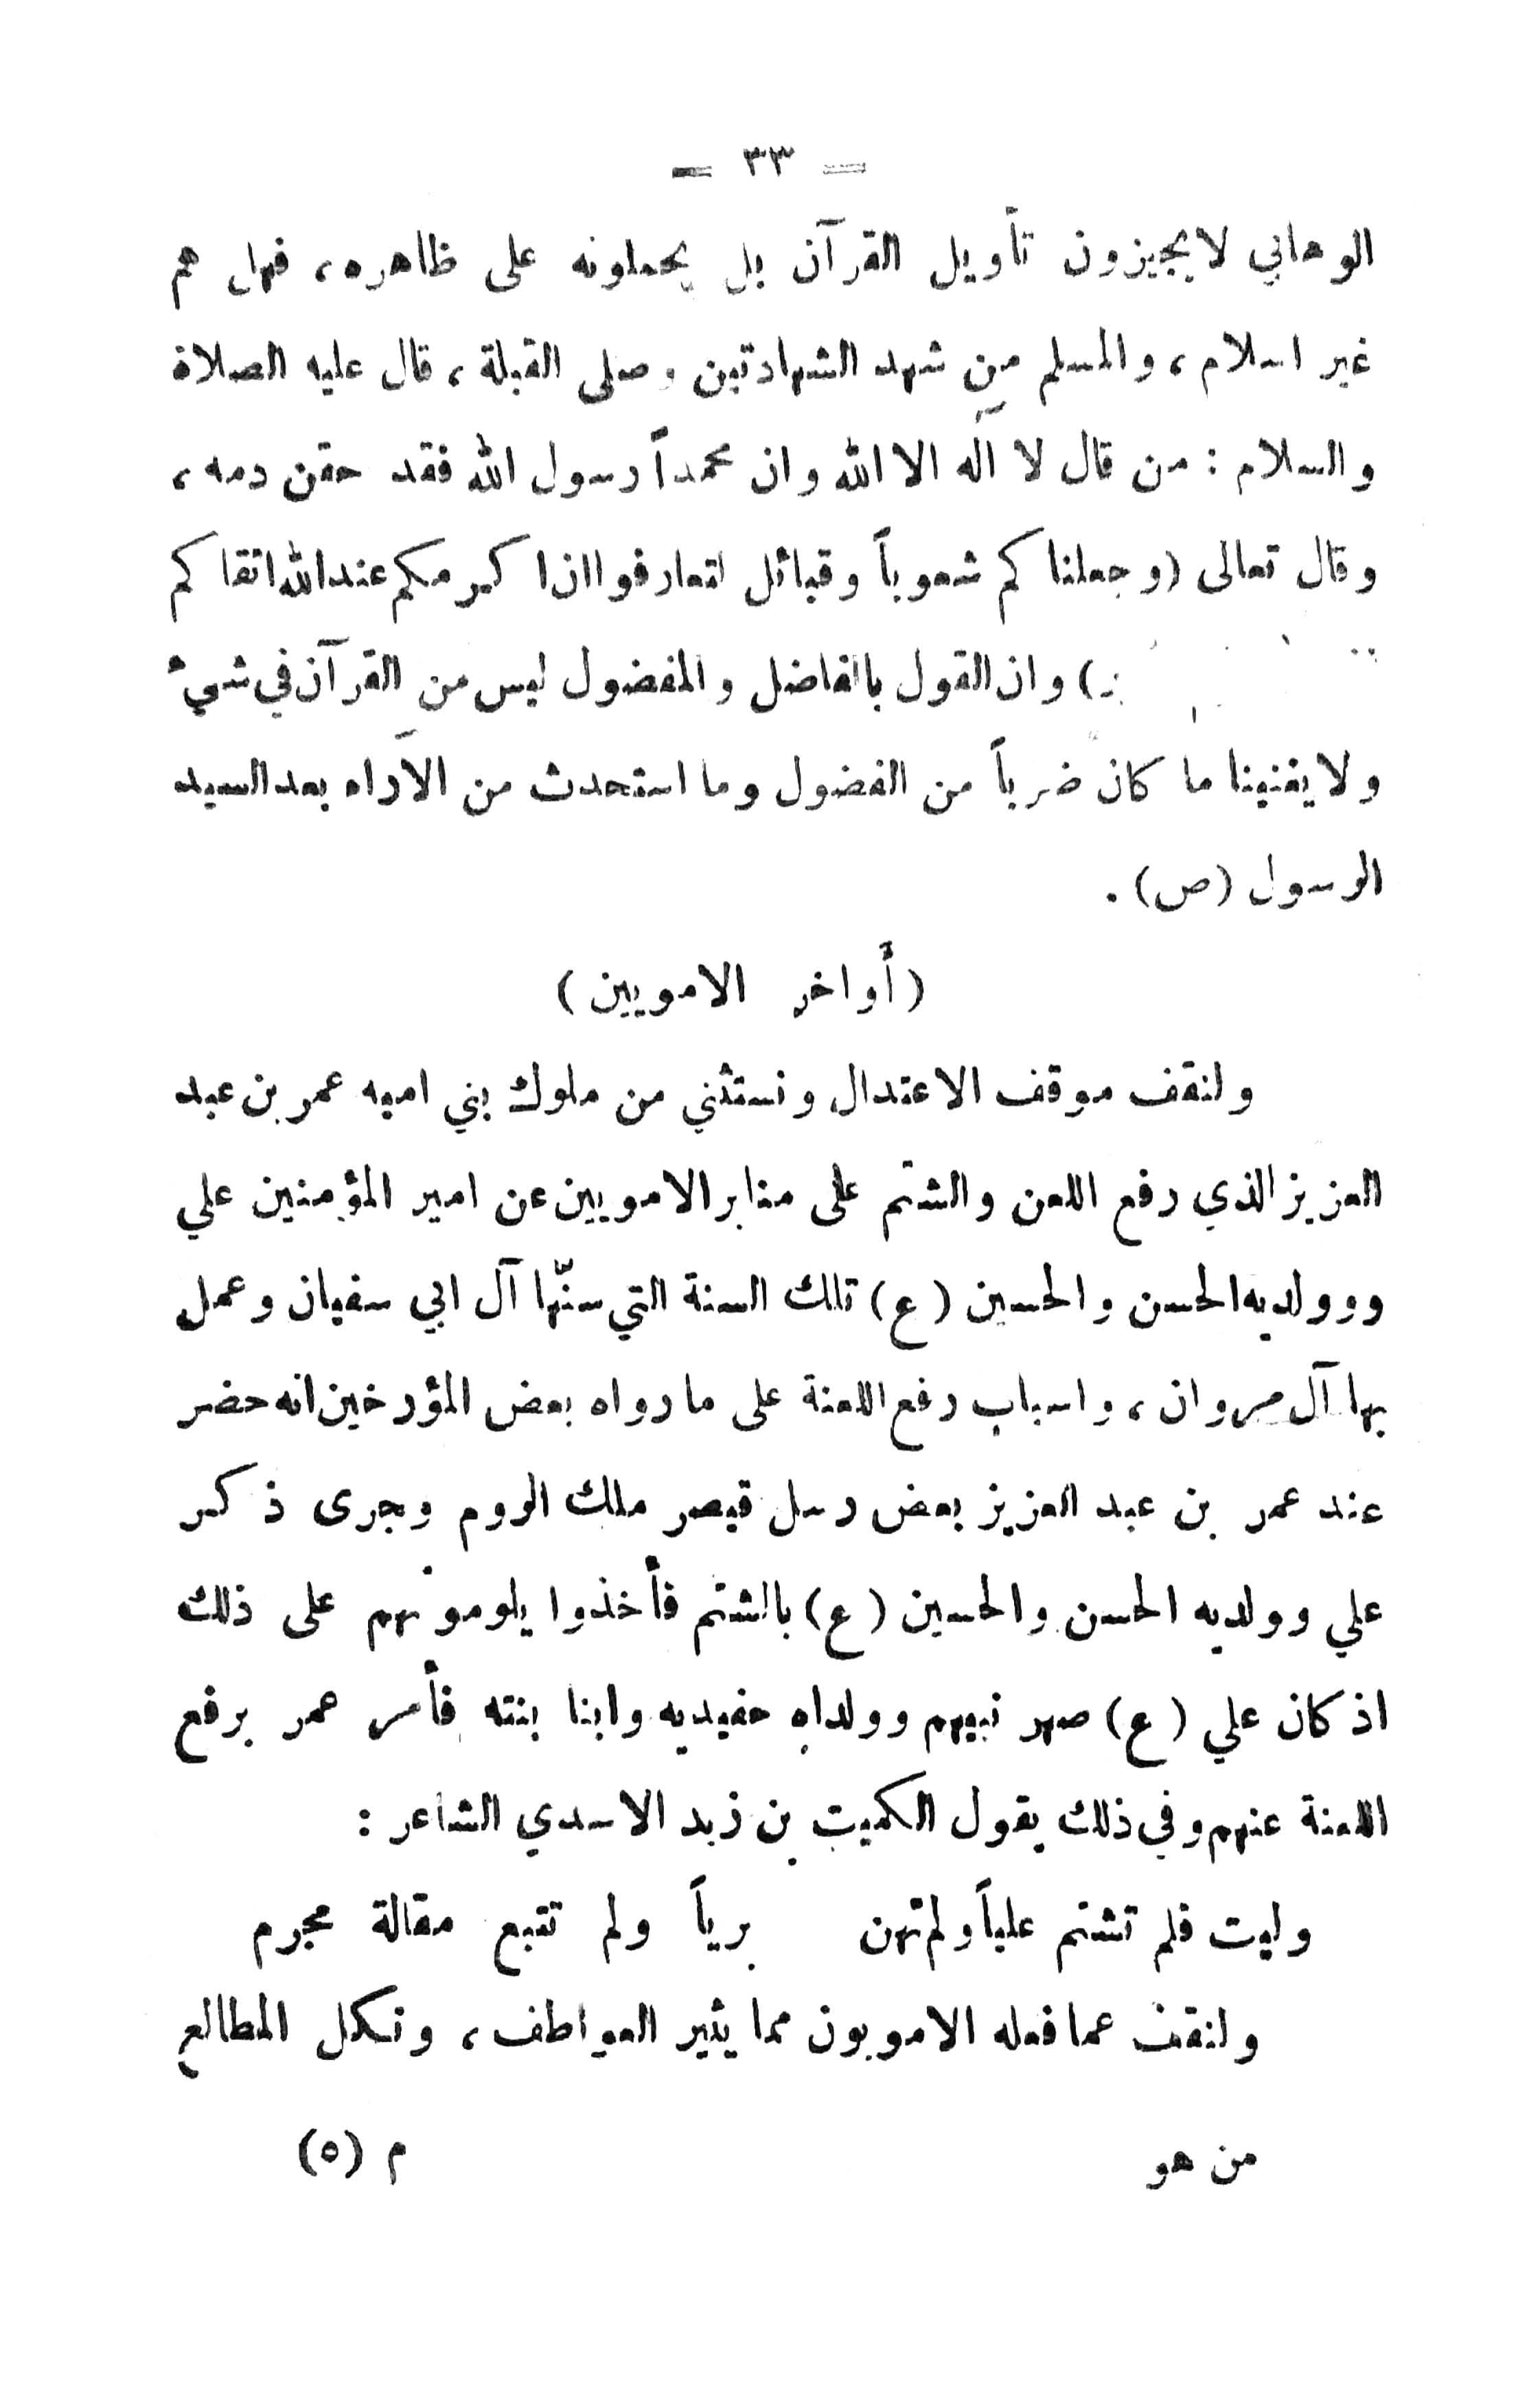 = ٣٣ =
الوهابي لا يجيزون تأويل القرآن بل يحملونه على ظاهره، فهل هم
غير اسلام، والمسلم من شهد الشهادتين وصلى القبلة، قال عليه الصلاة
والسلام : من قال لا اله الا الله وان محمداً رسول الله فقد حقن دمه،
وقال تعالى (وجعلناكم شعوباً وقبائل لتعارفوا ان اكرمكم عند الله اتقاكم
) وان القول بالفاضل والمفضول ليس من القرآن في شيء
ولا يغنينا ما كان ضرباً من الفضول وما استحدث من الآراء بعد السيد
الرسول (ص) .
(أواخر الامويين)
ولنقف موقف الاعتدال ونستثني من ملوك بني اميه عمر بن عبد
العزيز الذي رفع اللعن والشتم على منابر الامويين عن امير المؤمنين علي
وولديه الحسن والحسين (ع) تلك السنة التي سنّها آل ابي سفيان وعمل
بها آل مروان، واسباب رفع اللعنة على ما رواه بعض المؤرخين انه حضر
عند عمر بن عبد العزيز بعض رسل قيصر ملك الروم وجرى ذكر
علي وولديه الحسن والحسين (ع) بالشتم فأخذوا يلومونهم على ذلك
اذ كان علي (ع) صهر نبيهم وولداه حفيديه وابنا بنته فأمر عمر برفع
اللعنة عنهم وفي ذلك يقول الكميت بن زيد الاسدي الشاعر :
وليت فلم تشتم علياً ولم تهن برياً ولم تتبع مقالة مجرم
ولنقف عما فعله الامويون مما يثير العواطف، ونكل المطالع
من هو م (٥)